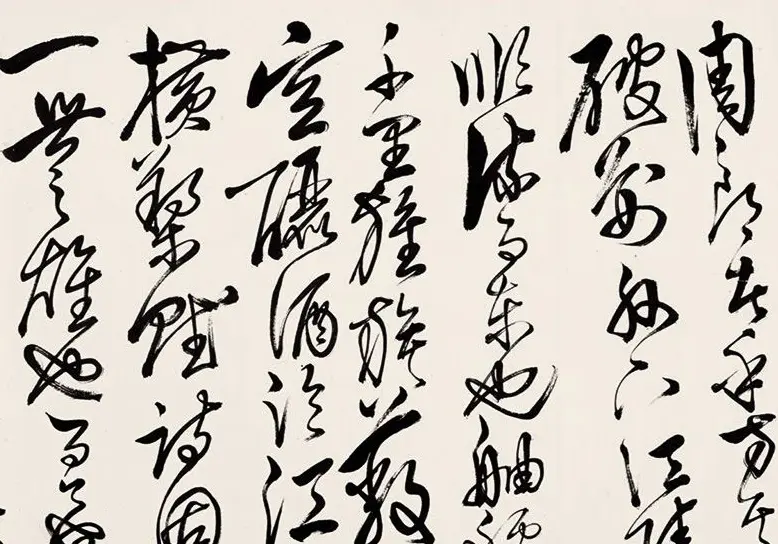 周郎者乎方其
破荊州下江陵
順流而東也舳艫
千里旌旗蔽
空釃酒臨江
橫槊賦詩固
一世之雄也而今安